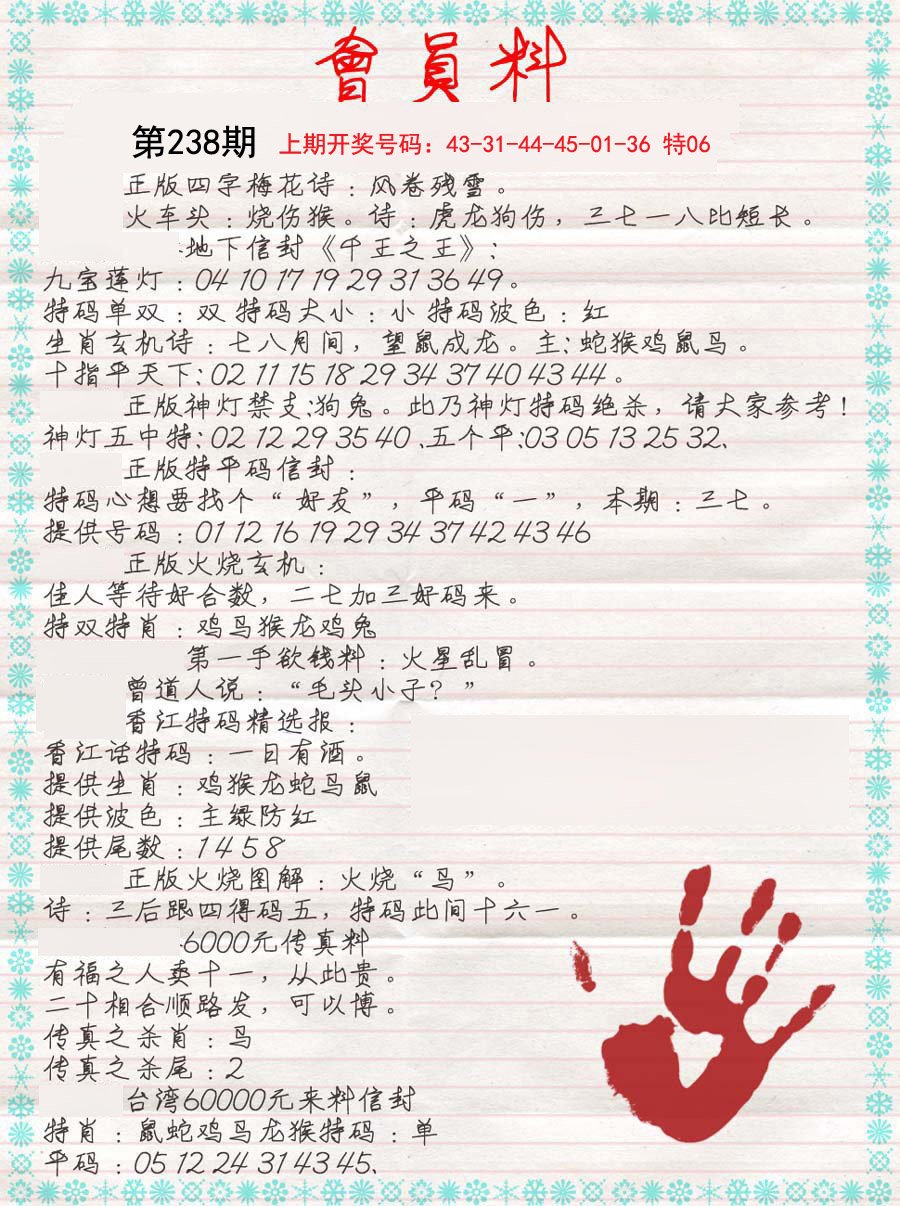 會員料
第238期 上期开奖号码：43-31-44-45-01-36 特06
正版四字梅花诗：风卷残雪。
火车头：烧伤猴。诗：虎龙狗伤，三七一八比短长。
地下信封《千王之王》：
九宝莲灯：04 10 17 19 29 31 36 49。
特码单双：双 特码大小：小 特码波色：红
生肖玄机诗：七八月间，望鼠成龙。主：蛇猴鸡鼠鸟。
十指平天下：02 11 15 18 29 34 37 40 43 44。
正版神灯禁支：狗兔。此乃神灯特码绝杀，请大家参考！
神灯五中特：02 12 29 35 40 .五个平：03 05 13 25 32.
正版特平码信封：
特码心想要找个“好友”，平码“一”，本期：三七。
提供号码：01 12 16 19 29 34 37 42 43 46
正版火烧玄机：
佳人等待好合数，二七加三好码来。
特双特肖：鸡鸟猴龙鸡兔
第一手欲钱料：火星乱冒。
曾道人说：“毛头小子？”
香江特码精选报：
香江话特码：一日有酒。
提供生肖：鸡猴龙蛇鸟鼠
提供波色：主绿防红
提供尾数：1 4 5 8
正版火烧图解：火烧“鸟”。
诗：三后跟四得码五，特码此间十六一。
6000元传真料
有福之人卖十一，从此贵。
二十相合顺路发，可以博。
传真之杀肖：鸟
传真之杀尾：2
台湾60000元来料信封
特肖：鼠蛇鸡鸟龙猴特码：单
平码：05 12 24 31 43 45.